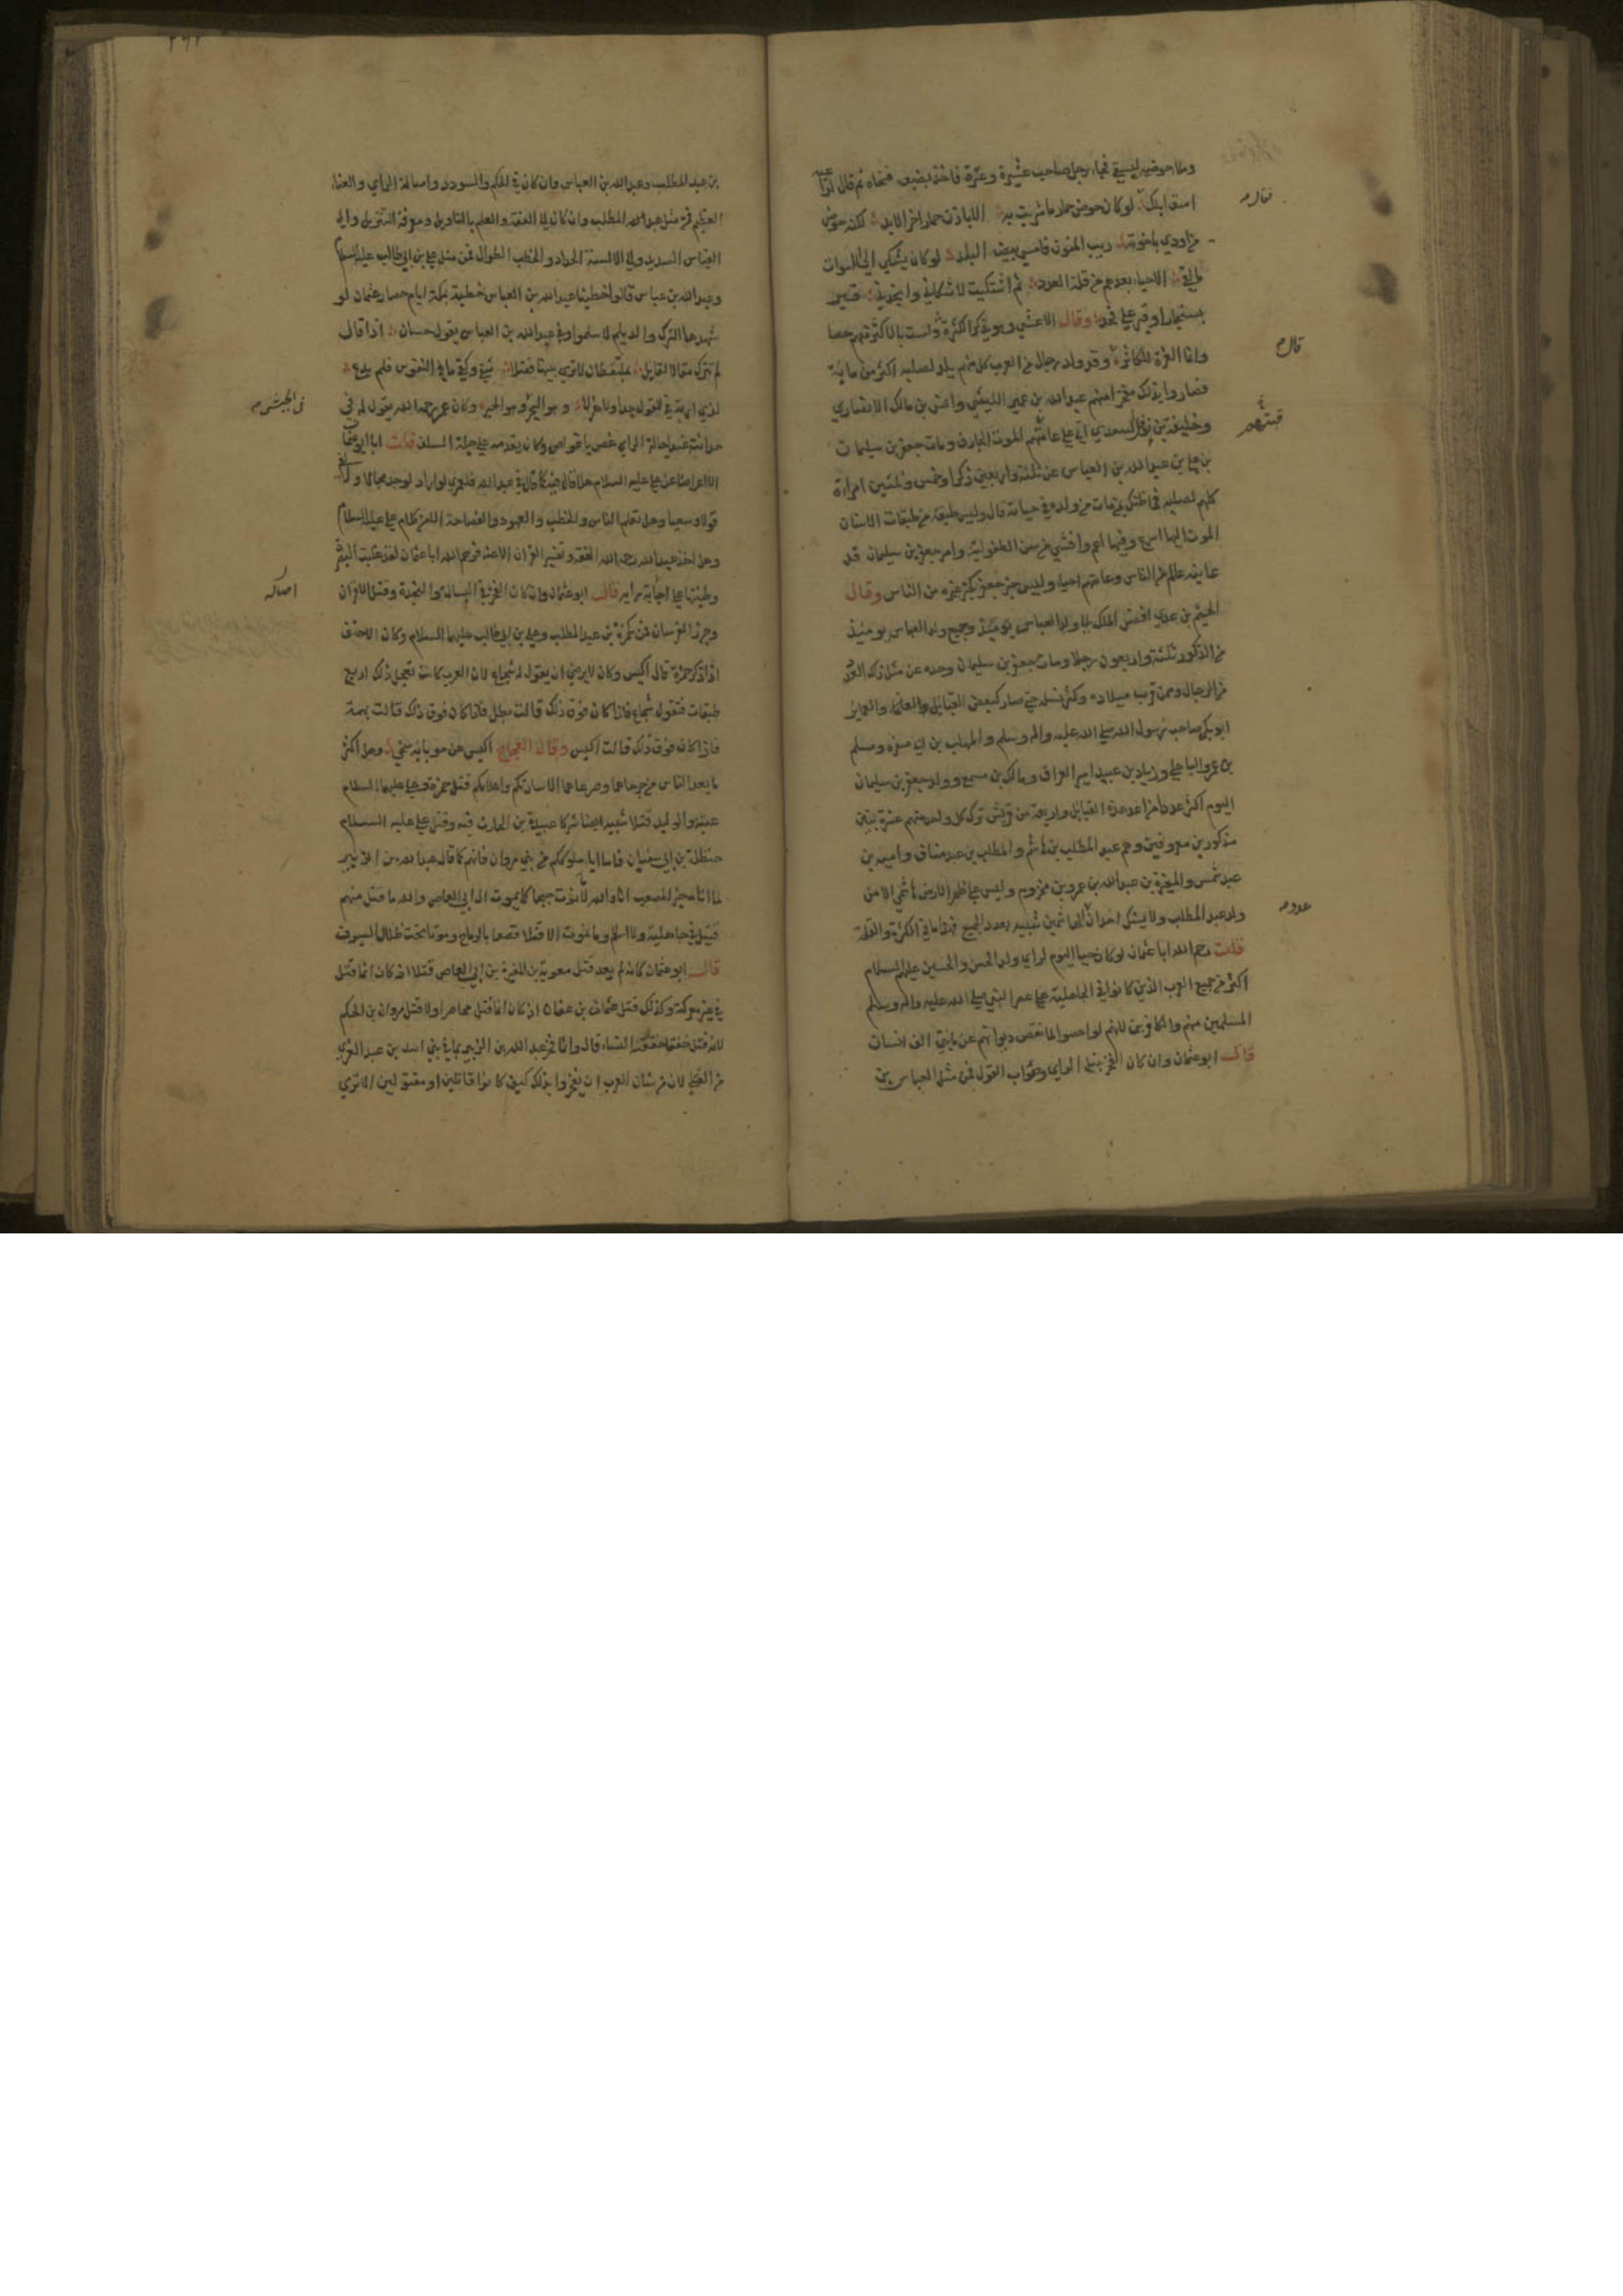 وملا حوضه ليسقي فجاء رجل صاحب عشيرة وعترة فاخذ بضبعه فنحاه ثم قال لراعيه
اسق ابلك لو كان حوض حمار ما شربت به الا باذن حمار اخر الابد لكنه حوض
من اودى باخوته ريب المنون فامسى بيضة البلد لو كان يشكى الى الاموات
ما لقى الاحياء بعدهم من قلة العدد ثم اشتكيت لاشكاني وانجدني قبر
بسنجار او قبر على قحد وقال الاعشى وهو يذكر الكثرة ولست بالاكثر منهم حصا
وانما العزة للكاثر وقد ولد رجال من العرب كل منهم يلد لصلبه اكثر من ماية
فصاروا بذلك مفخرا منهم عبد الله بن عمير الليثي وانس بن مالك الانصاري
وخليفة بن السعدي اتى على عامتهم الموت الجارف ومات جعفر بن سليمان
بن علي بن عبد الله بن العباس عن ثلثة واربعين ذكرا وخمس وثلثين امراة
كلهم لصلبه فما ظنك بمن مات من ولده في حياته قال وليس طبقة من طبقات الاسنان
الموت اليها اسرع وفيها اعم وافشى من سن الطفولية وامر جعفر بن سليمان قد
عاينه عالم من الناس وعامتهم احياء وليس خبر جعفر كخبر غيره من الناس وقال
الهيثم بن عدي افضى الملك الى ولد العباس يومئذ وجميع ولد العباس يومئذ
من الذكور ثلثة واربعون رجلا ومات جعفر بن سليمان وحده عن مثل ذلك العدد
من الرجال وممن قرب ميلاده وكثر نسله حتى صار كبعض القبايل والعماير
ابو بكر صاحب رسول الله صلى الله عليه واله وسلم والمهلب بن ابي صفرة ومسلم
بن عمرو الباهلي وزياد بن عبيد امير العراق ومالك بن مسمع وولد جعفر بن سليمان
اليوم اكثر عددا من هذه القبايل واربعة من قريش ترك كل واحد منهم عشرة بنين
مذكورين معروفين وهم عبد المطلب بن هاشم والمطلب بن عبد مناف وامية بن
عبد شمس والمغيرة بن عبد الله بن عمر بن مخزوم وليس على ظهر الارض هاشمي الا من
ولد عبد المطلب ولا يشك احد ان الهاشمين شبيه بعدد الجميع فهذا ما في الكثرة والقلة
قلت رحم الله ابا عثمان لو كان حيا اليوم لراى ولد الحسن والحسين عليهما السلام
اكثر من جميع العرب الذين كانوا في الجاهلية على عصر النبي صلى الله عليه واله وسلم
المسلمين منهم والكافرين لانهم لو احصوا لما نقص ديوانهم عن مايتي الف انسان
قال ابو عثمان وان كان الفخر بنبل الراي وصواب القول فمن مثل العباس بن
فقال
قال
عدد
بن عبد المطلب وعبد الله بن العباس وان كان في الحكم والسودد واصالة الراي والغناء
العظيم فمن مثل عبد المطلب وان كان الى الفقه والعلم بالتاويل ومعرفة التنزيل والى
القياس السديد والى الالسنة الحداد والخطب الطوال فمن مثل علي بن ابي طالب عليه السلام
وعبد الله بن عباس قالوا خطبنا عبد الله بن العباس خطبة بمكة ايام حصار عثمان لو
شهدها الترك والديلم لاسلموا وفي عبد الله بن العباس يقول حسان اذا قال
لم يترك مقالا لقايل بملتقطات لا ترى بينها فضلا شفى وكفى ما في النفوس فلم يدع
لذي اربة في القول جدا ولا هزلا وهو البحر وهو الحبر وكان عمر رحمه الله يقول له في
حداثته عند اجالة الراي غص يا غواص وكان يقدمه على جلة السلف قلت ابا ابو عثمان
الا اعراضا عن علي عليه السلام هلا قال فيه كما قال في عبد الله فلعمري لو اراد لوجد مجالا
قولا وسيعا وهل تعلم الناس والخطب والعهود والفصاحة الا من كلام علي عليه السلام
وهل اخذ عبد الله رحمه الله الفقه وتفسير القران الا عنه فرحم الله ابا عثمان لقد غلبت البصرة
وطينتها على اصابة رايه قال ابو عثمان وان كان الفخر في البسالة والنجدة وقتل الاقران
وجزر الفرسان فمن كحمزة بن عبد المطلب وعلي بن ابي طالب عليهما السلام وكان الاحنف
اذا ذكر حمزة قال اكيس وكان لا يرضى ان يقول له شجاع لان العرب كانت تجعل ذلك اربع
طبقات فتقول شجاع فاذا كان فوق ذلك قالت بطل فاذا كان فوق ذلك قالت بهمة
فاذا كان فوق ذلك قالت اكيس وقال العجاج اكيس عن حوبايه سخي وهل اكثر
ما يعد الناس من جرحاها وصرعاها الا سادتكم واعلامكم قتل حمزة وعلي عليهما السلام
عتبة والوليد قتلا شيبة ايضا شركا عبيدة بن الحارث فيه وقتل علي عليه السلام
حنظلة بن ابي سفيان فاما اباء ملوككم من بني مروان فانهم كما قال عبد الله بن الزبير
لما اتاه خبر المصعب انا والله لا نموت حبجا كما يموت ال ابي العاص والله ما قتل منهم
قتيل في جاهلية ولا اسلام وما نموت الا قتلا قعصا بالرماح وموتا تحت ظلال السيوف
قال ابو عثمان كانه لم يعد قتل معوية بن المغيرة بن ابي العاص قتلا اذ كان انما قتل
في غير معركة وكذلك قتل عثمان بن عفان اذ كان انما قتل محاصرا ولا قتل مروان بن الحكم
لانه قتل خنقا خنقته النساء قال وانما فخر عبد الله بن الزبير بما في بني اسد بن عبد العزى
من القتلى لان من شان العرب ان يفخروا بذلك كيف كانوا قاتلين او مقتولين الا ترى
اصاله